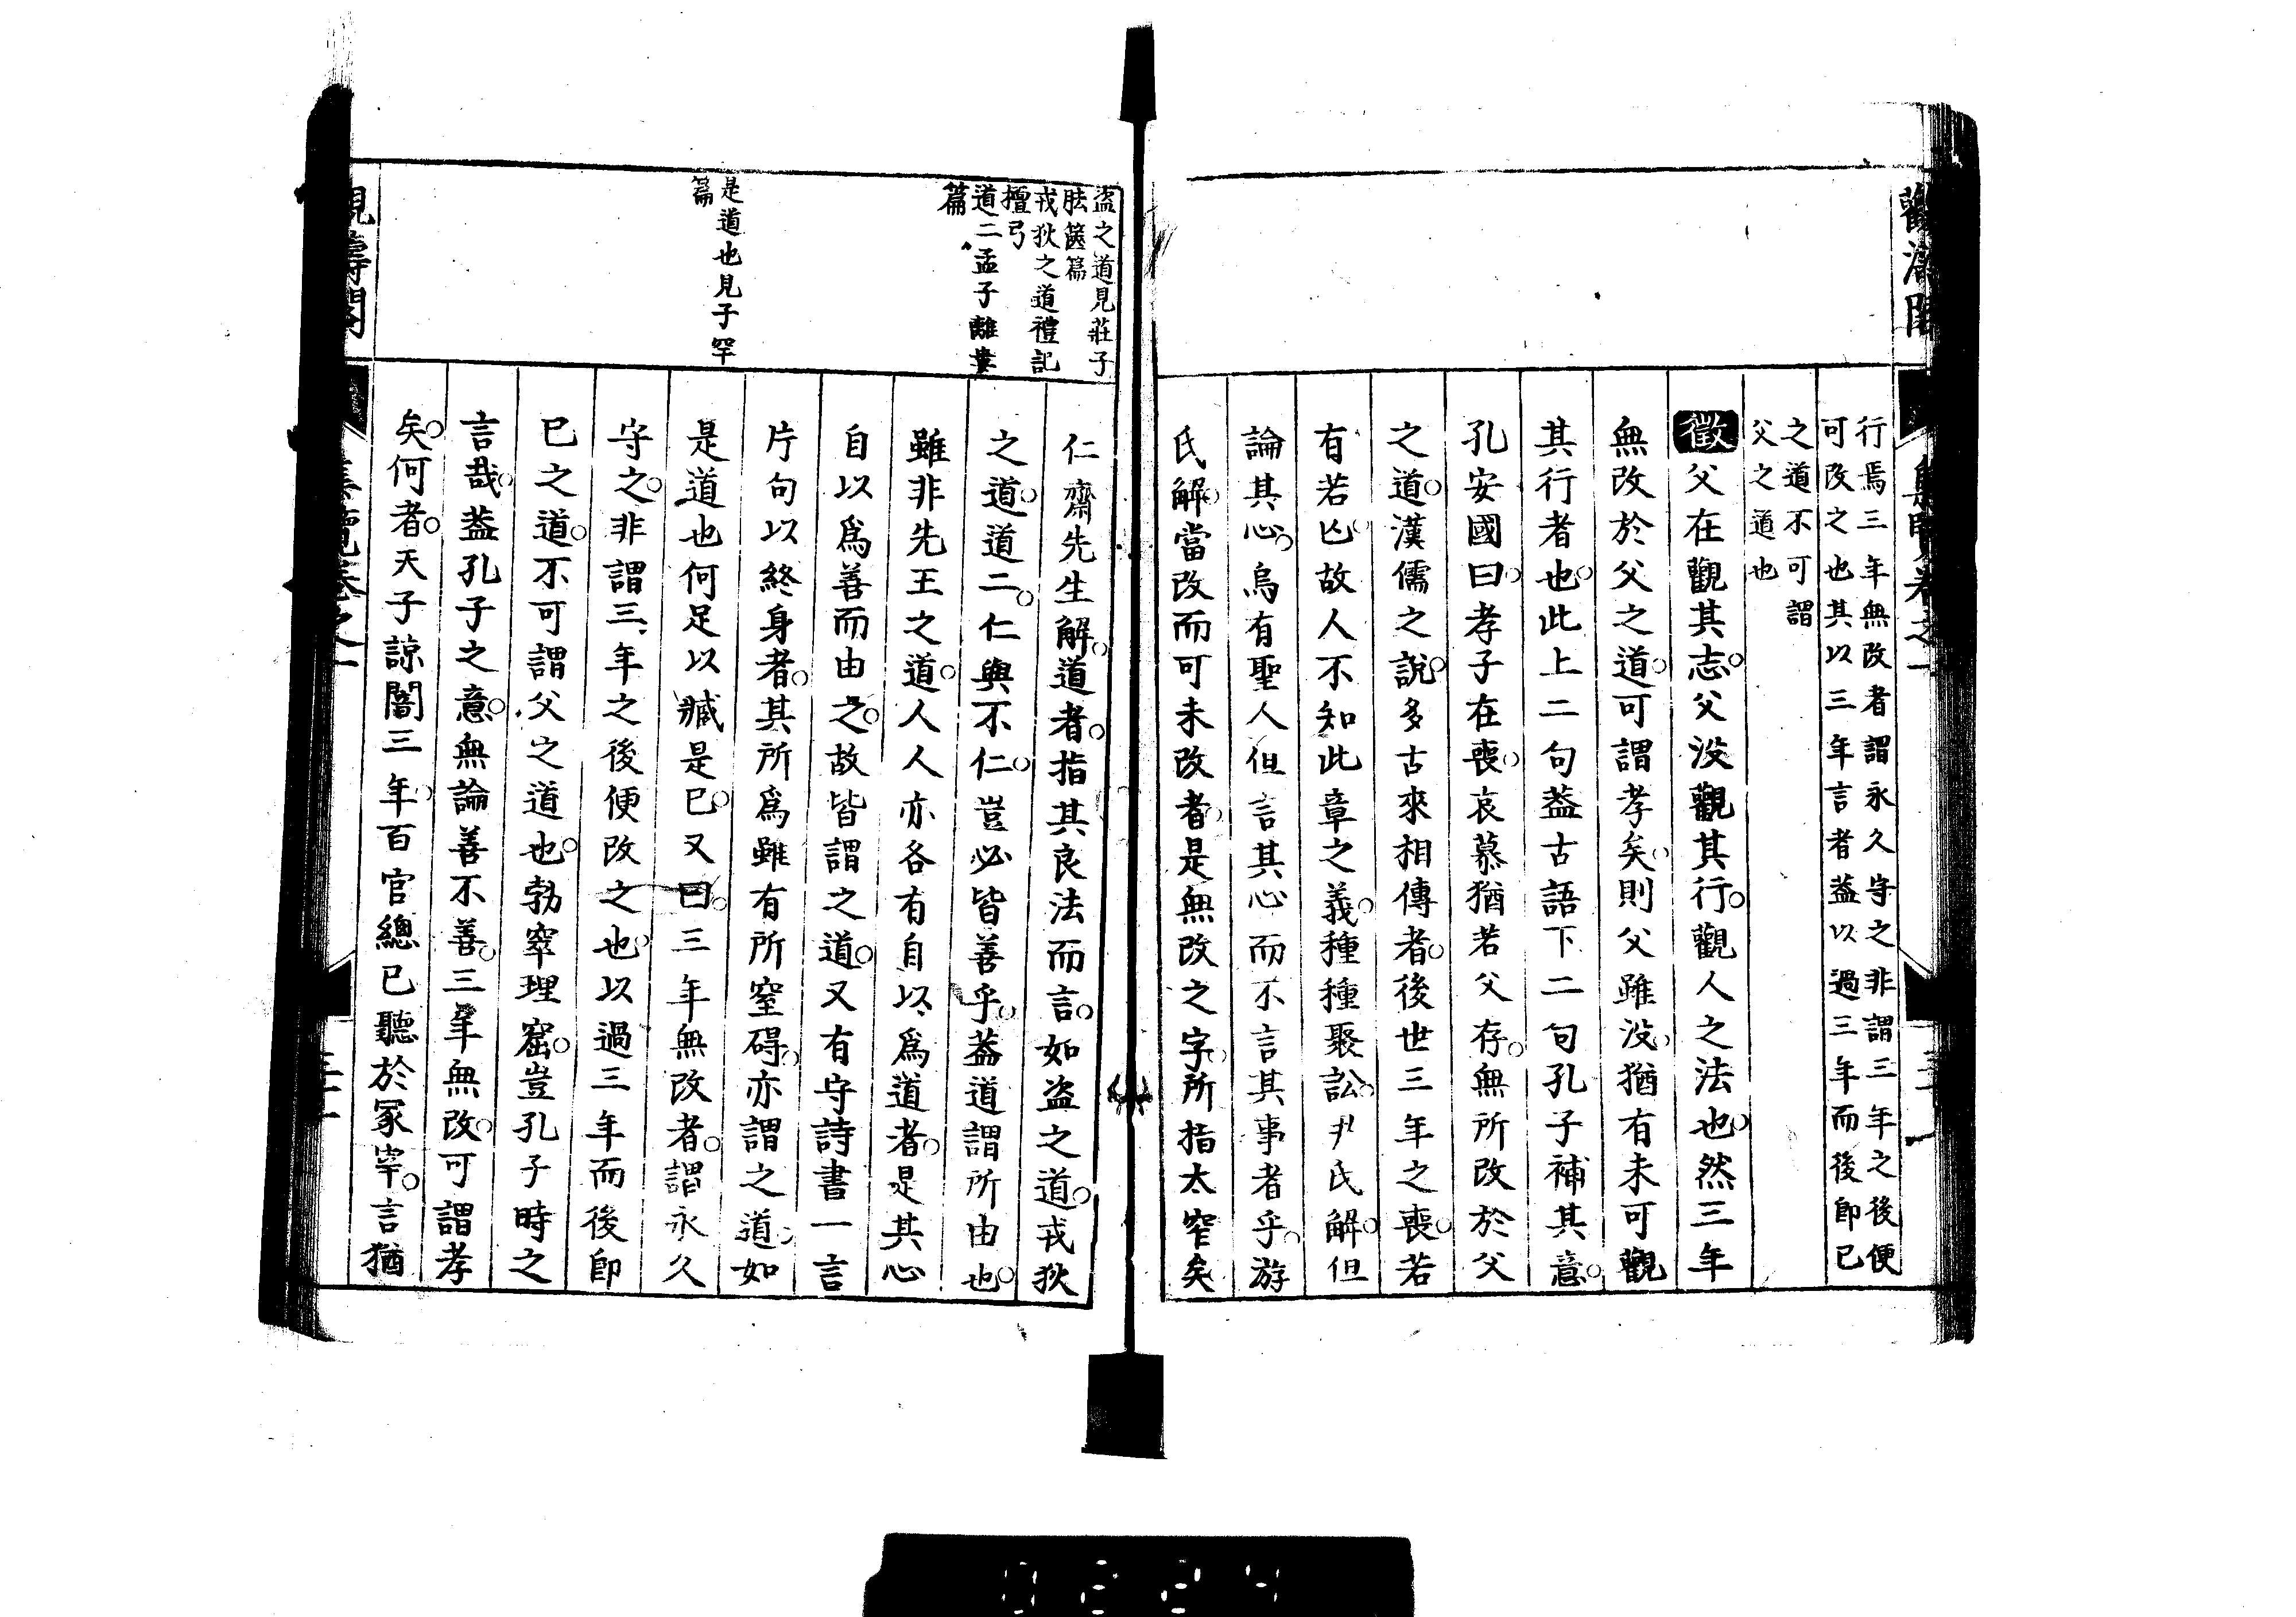 行焉三年無改者謂永久守之非謂三年之後便
可改之也其以三年言者葢以過三年而後即已
之道不可謂
父之道也
徵父在觀其志父没觀其行觀人之法也然三年
無改於父之道可謂孝矣則父雖没猶有未可觀
其行者也此上二句葢古語下二句孔子補其意
孔安國曰孝子在喪哀慕猶若父存無所改於父
之道漢儒之說多古來相傳者後世三年之喪若
有若亡故人不知此章之義種種聚訟尹氏解但
論其心烏有聖人但言其心而不言其事者乎游
氏解當改而可未改者是無改之字所指太窄矣
盗之道見莊子
胠篋篇
戎狄之道禮記
檀弓
道二孟子離婁
篇
是道也見子罕
篇
仁齋先生解道者指其良法而言如盗之道戎狄
之道道二仁與不仁豈必皆善乎葢道謂所由也
雖非先王之道人人亦各有自以爲道者是其心
自以爲善而由之故皆謂之道又有守詩書一言
片句以終身者其所爲雖有所窒碍亦謂之道如
是道也何足以臧是已又曰三年無改者謂永久
守之非謂三年之後便改之也以過三年而後即
已之道不可謂父之道也勃窣理窟豈孔子時之
言哉葢孔子之意無論善不善三年無改可謂孝
矣何者天子諒闇三年百官總已聽於冢宰言猶